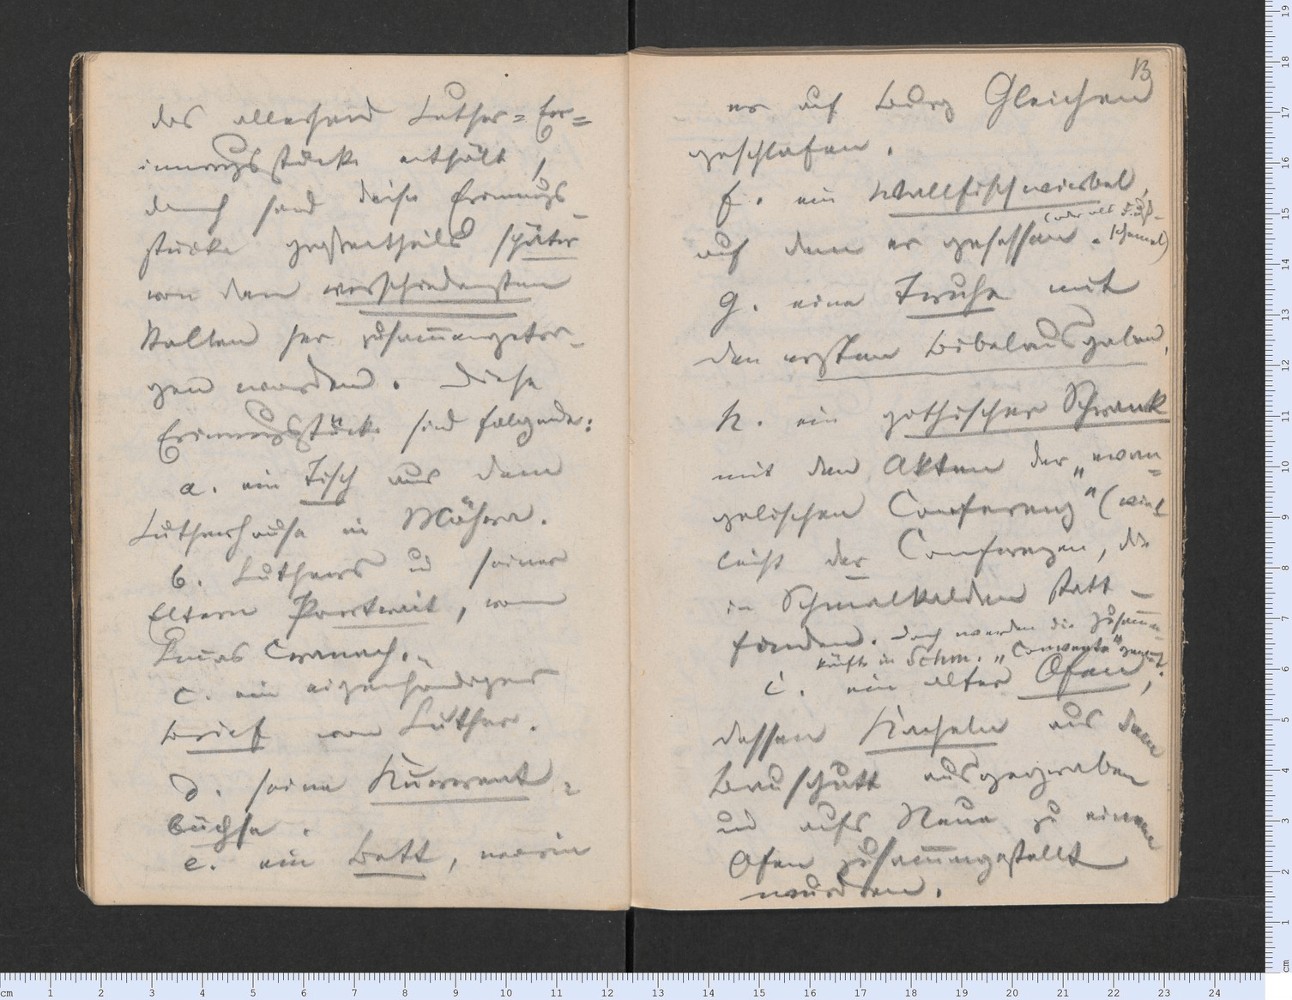 das allerhand Luther=Er=
innerungsstücke enthält,
doch sind diese Erinnrungs-
stücke großentheils später
von den verschiedensten
Stellen her zusammengetra-
gen worden. Diese
Erinnerungsstücke sind folgende:
a. ein Tisch aus dem
Lutherhause in Möhra.
b. Luthers u seiner
Eltern Portrait, von
Lucas Cranach.
c. ein eigenhändiger
Brief von Luther.
d. seine Kurrent-
büchse.
e. ein Bett, worin
13
er auf Burg Gleichen
geschlafen.
f. ein Wallfischwirbel,
auf dem er gesessen. (oder als Fuß-
schemel)
g. eine Truhe mit
den ersten Bibelausgaben,
h. ein gothischer Schrank
mit den Akten der „evan=
gelischen Conferenz" (viel
leicht der Conferenzen, die
in Schmalkalden statt-
fanden. Doch werden die Zusamm-
künfte in Schm. „Convente" genannt.
i. ein alter Ofen,
dessen Kacheln aus dem
Bauschutt ausgegraben
und aufs Neue zu einem
Ofen zusammengestellt
wurden.